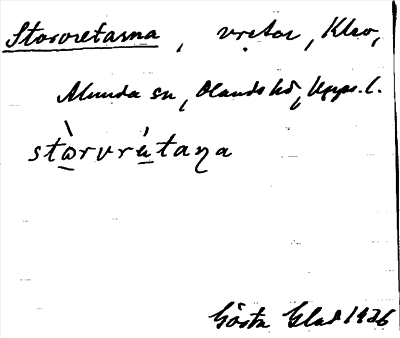 Storvretarna, vretar, Klev,
Alunda sn, Olands hd, Upps. l.
stɷ̀rvrȧtaɳa
Gösta Glad 1926